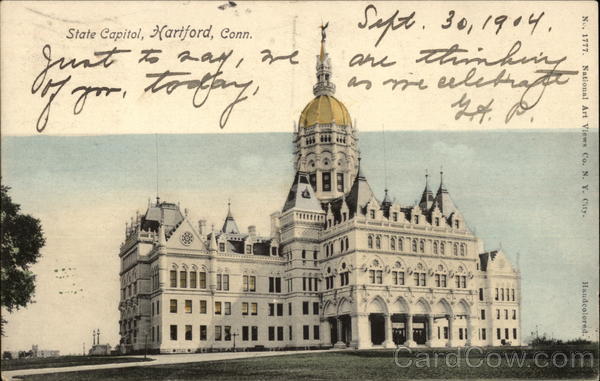 State Capitol, Hartford, Conn.
Sept. 30, 1904
Just to say, we are thinking
of you, today, as we celebrate
No. 1777. National Art Views Co. N. Y. City. Handcolored.
© CardCow.com